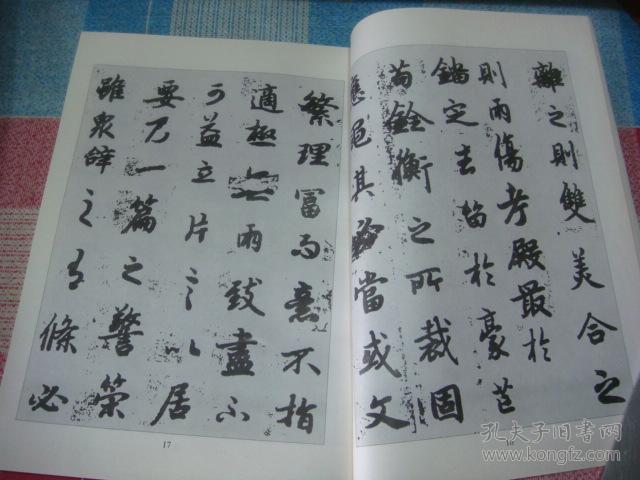 離之則雙美合之
則兩傷考殿最於
錙定去留於豪芒
苟銓衡之所裁固
應繩其必當或文
繁理冨而意不指
適極無兩致盡不
可益立片言以居
要乃一篇之警策
雖衆辭之有條必
17
16
孔夫子旧书网
www.kongfz.com